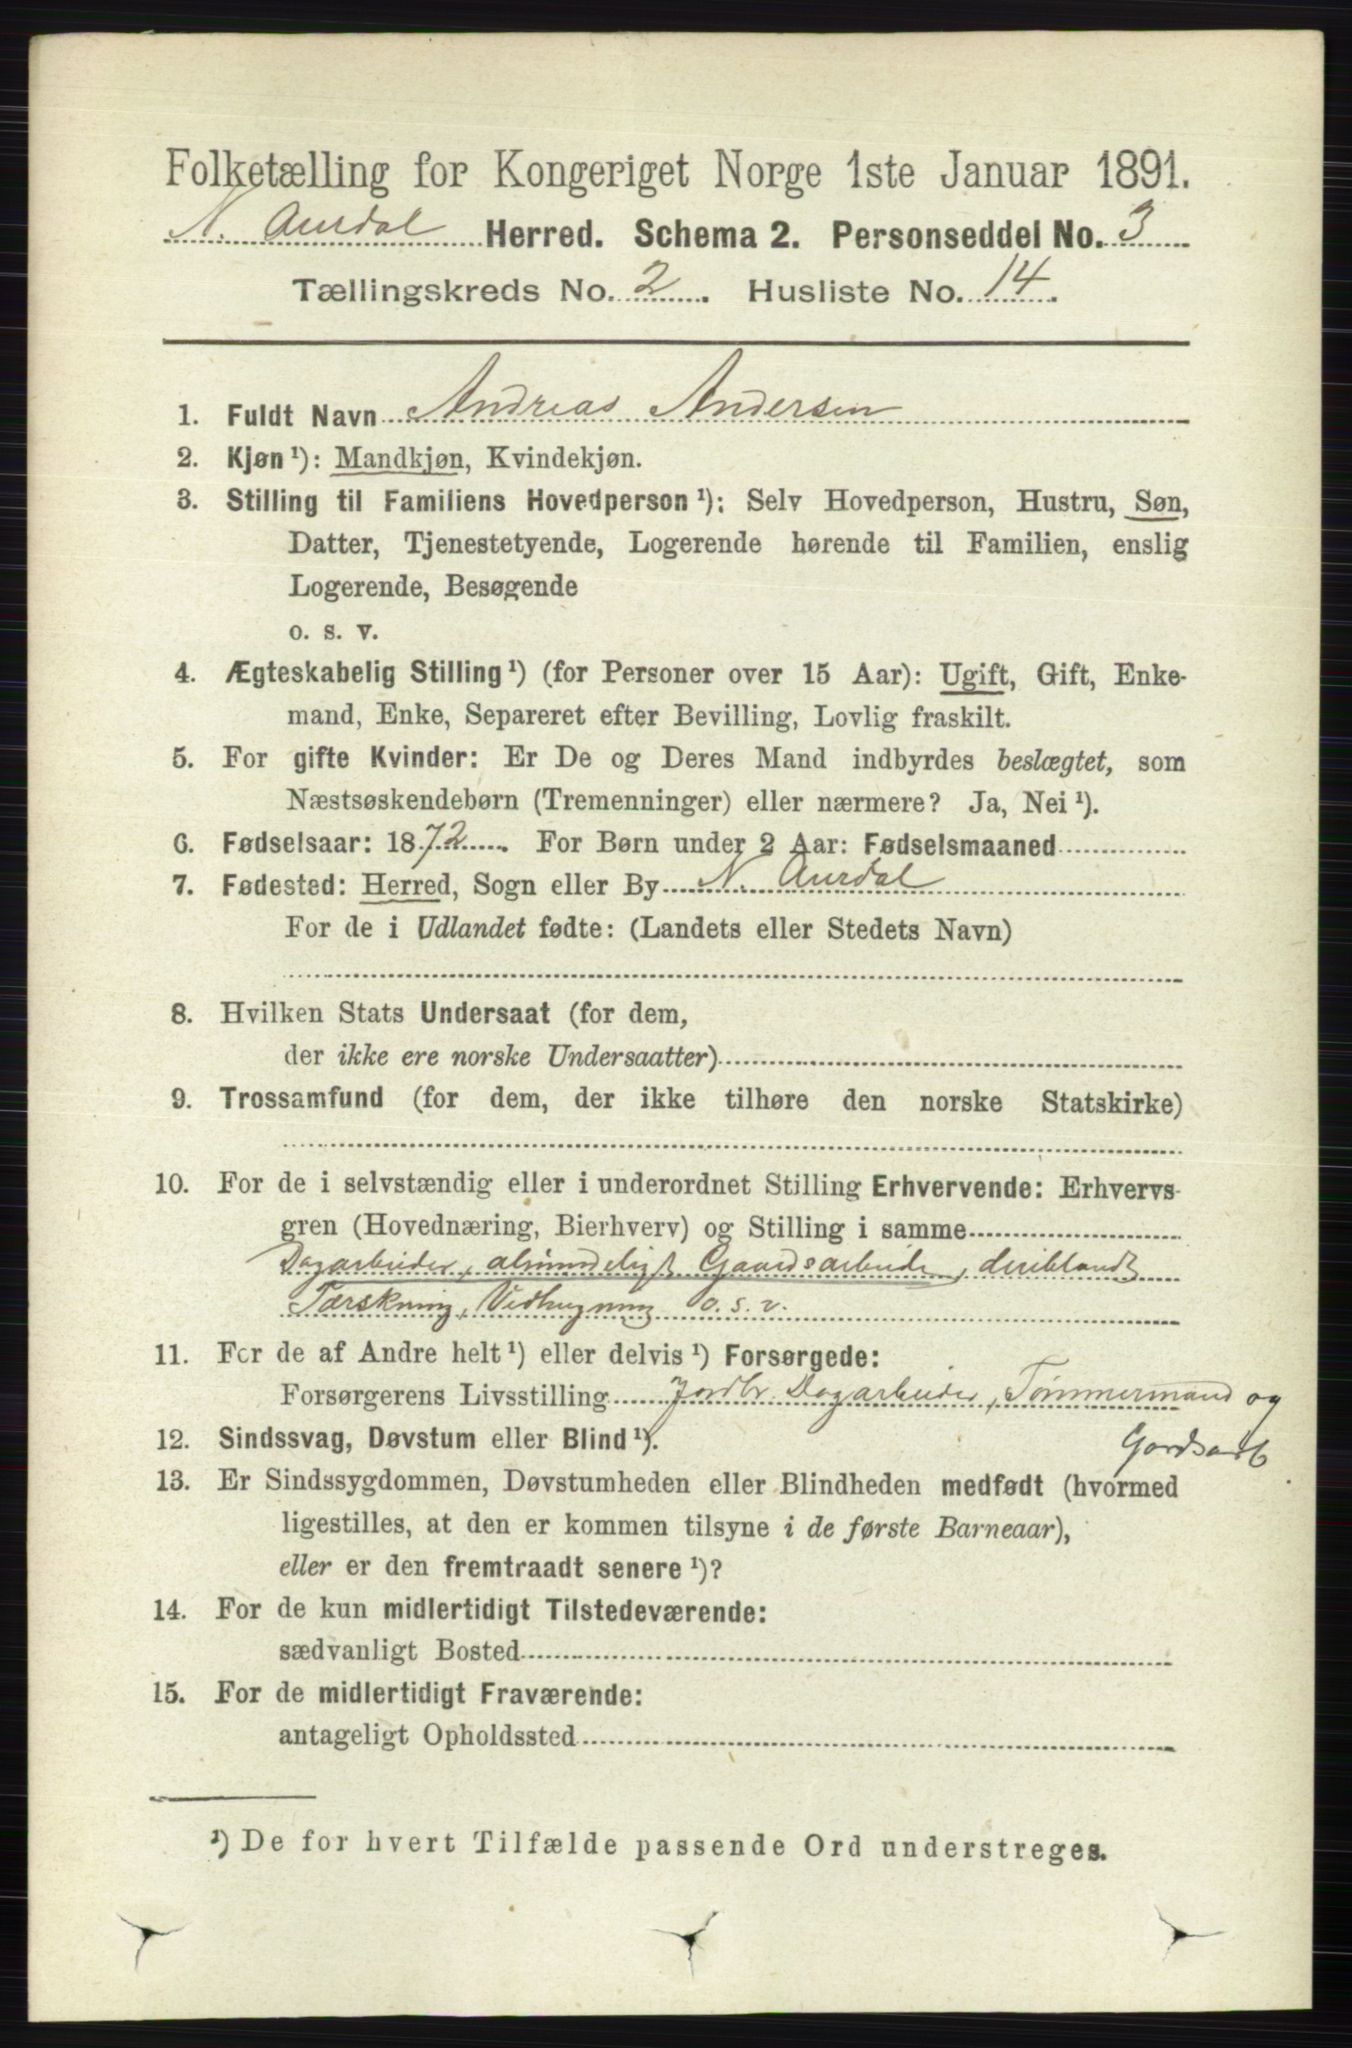 Folketælling for Kongeriget Norge 1ste Januar 1891.
N. Aurdal Herred. Schema 2. Personseddel No. 3
Tællingskreds No. 2. Husliste No. 14.
1. Fuldt Navn Andreas Andersen
2. Kjøn ¹): Mandkjøn, Kvindekjøn.
3. Stilling til Familiens Hovedperson ¹): Selv Hovedperson, Hustru, Søn,
Datter, Tjenestetyende, Logerende hørende til Familien, enslig
Logerende, Besøgende
o. s. v.
4. Ægteskabelig Stilling ¹) (for Personer over 15 Aar): Ugift, Gift, Enke-
mand, Enke, Separeret efter Bevilling, Lovlig fraskilt.
5. For gifte Kvinder: Er De og Deres Mand indbyrdes beslægtet, som
Næstsøskendebørn (Tremenninger) eller nærmere? Ja, Nei ¹).
6. Fødselsaar: 1872. For Børn under 2 Aar: Fødselsmaaned
7. Fødested: Herred, Sogn eller By N. Aurdal
For de i Udlandet fødte: (Landets eller Stedets Navn)
8. Hvilken Stats Undersaat (for dem,
der ikke ere norske Undersaatter)
9. Trossamfund (for dem, der ikke tilhøre den norske Statskirke)
10. For de i selvstændig eller i underordnet Stilling Erhvervende: Erhvervs-
gren (Hovednæring, Bierhverv) og Stilling i samme
Dagarbeider, almindeligt Gaardsarbeide, deriblandt
Tærskning, Vedhugning o. s. v.
11. For de af Andre helt ¹) eller delvis ¹) Forsørgede:
Forsørgerens Livsstilling Jordbr. Dagarbeider, Tømmermand og
Gardsarb
12. Sindssvag, Døvstum eller Blind ¹).
13. Er Sindssygdommen, Døvstumheden eller Blindheden medfødt (hvormed
ligestilles, at den er kommen tilsyne i de første Barneaar),
eller er den fremtraadt senere ¹)?
14. For de kun midlertidigt Tilstedeværende:
sædvanligt Bosted
15. For de midlertidigt Fraværende:
antageligt Opholdssted
¹) De for hvert Tilfælde passende Ord understreges.